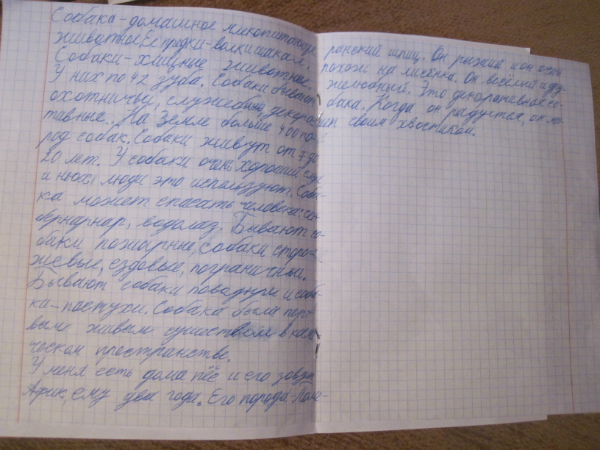 Собака - домашнее млекопитающее
животное. Её предки - волки и шакалы.
Собаки - хищные животные.
У них по 42 зуба. Собаки бывают
охотничьи, служебные, декора-
тивные. На Земле больше 400 по-
род собак. Собаки живут от 7 до
20 лет. У собаки очень хороший слух
и нюх и люди это используют. Соба-
ка может спасать человека: се-
бернарнар, водолаз. Бывают со-
баки пожарные, собаки сторо-
жевые, ездовые, пограничные.
Бывают собаки поводыри и соба-
ки-пастухи. Собака была пер-
вым живым существом в косми-
ческом пространстве.
У меня есть дома пёс и его зовут
Арик, ему два года. Его порода - поме-
ранский шпиц. Он рыжий и он очень
похож на лисёнка. Он весёлый и дру-
желюбный. Это декоративная со-
бака. Когда он радуется, он ма-
шет своим хвостиком.